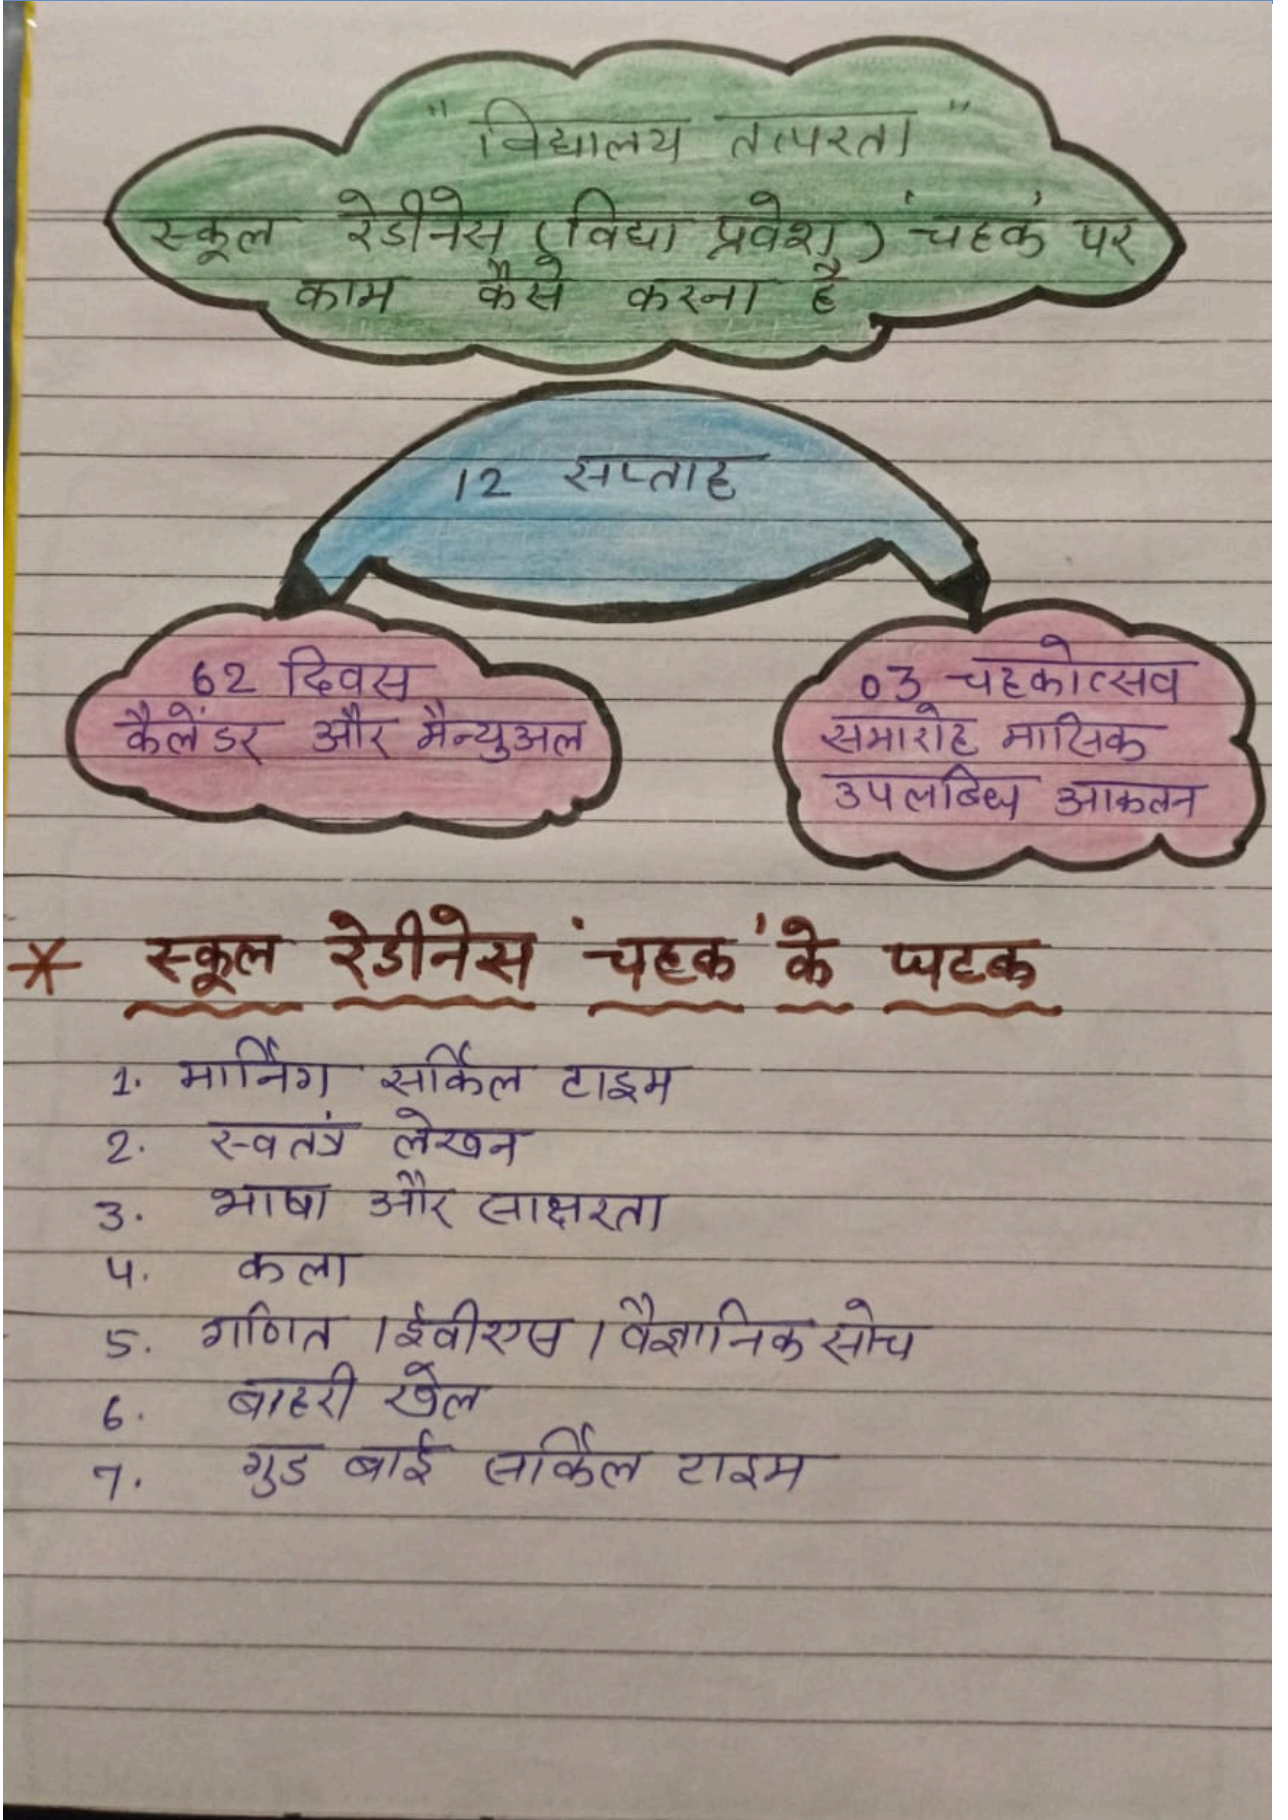 "विद्यालय तत्परता"
स्कूल रेडीनेस (विद्या प्रवेश) 'चहक' पर
काम कैसे करना है
12 सप्ताह
62 दिवस
कैलेंडर और मैन्युअल
03 चहकोत्सव
समारोह मासिक
उपलब्धि आकलन
* स्कूल रेडीनेस 'चहक' के घटक
1. मार्निंग सर्किल टाइम
2. स्वतंत्र लेखन
3. भाषा और साक्षरता
4. कला
5. गणित / ईवीएस / वैज्ञानिक सोच
6. बाहरी खेल
7. गुड बाई सर्किल टाइम